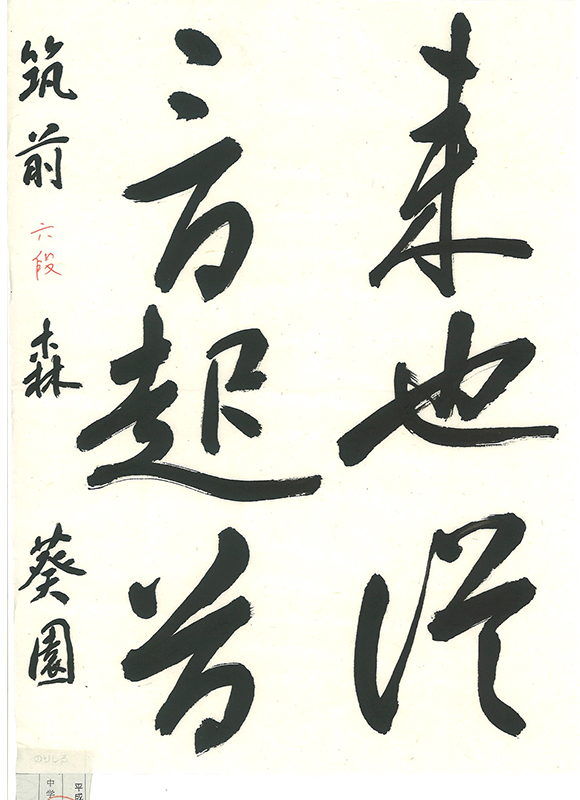 来也従
起首
筑前 六段 森 葵園
のりしろ
平成
中学